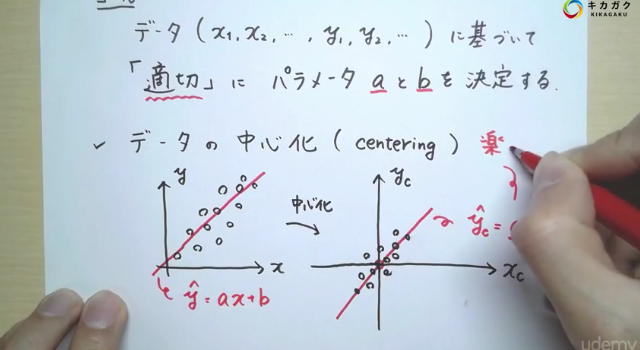 キカガク
KIKAGAKU
データ ( x₁, x₂, …, y₁, y₂, … ) に基づいて
「適切」に パラメータ a と b を決定する.
✓ データの中心化 ( centering ) 楽
y
中心化
y_c
x
x_c
ŷ = ax+b
ŷ_c =
udemy